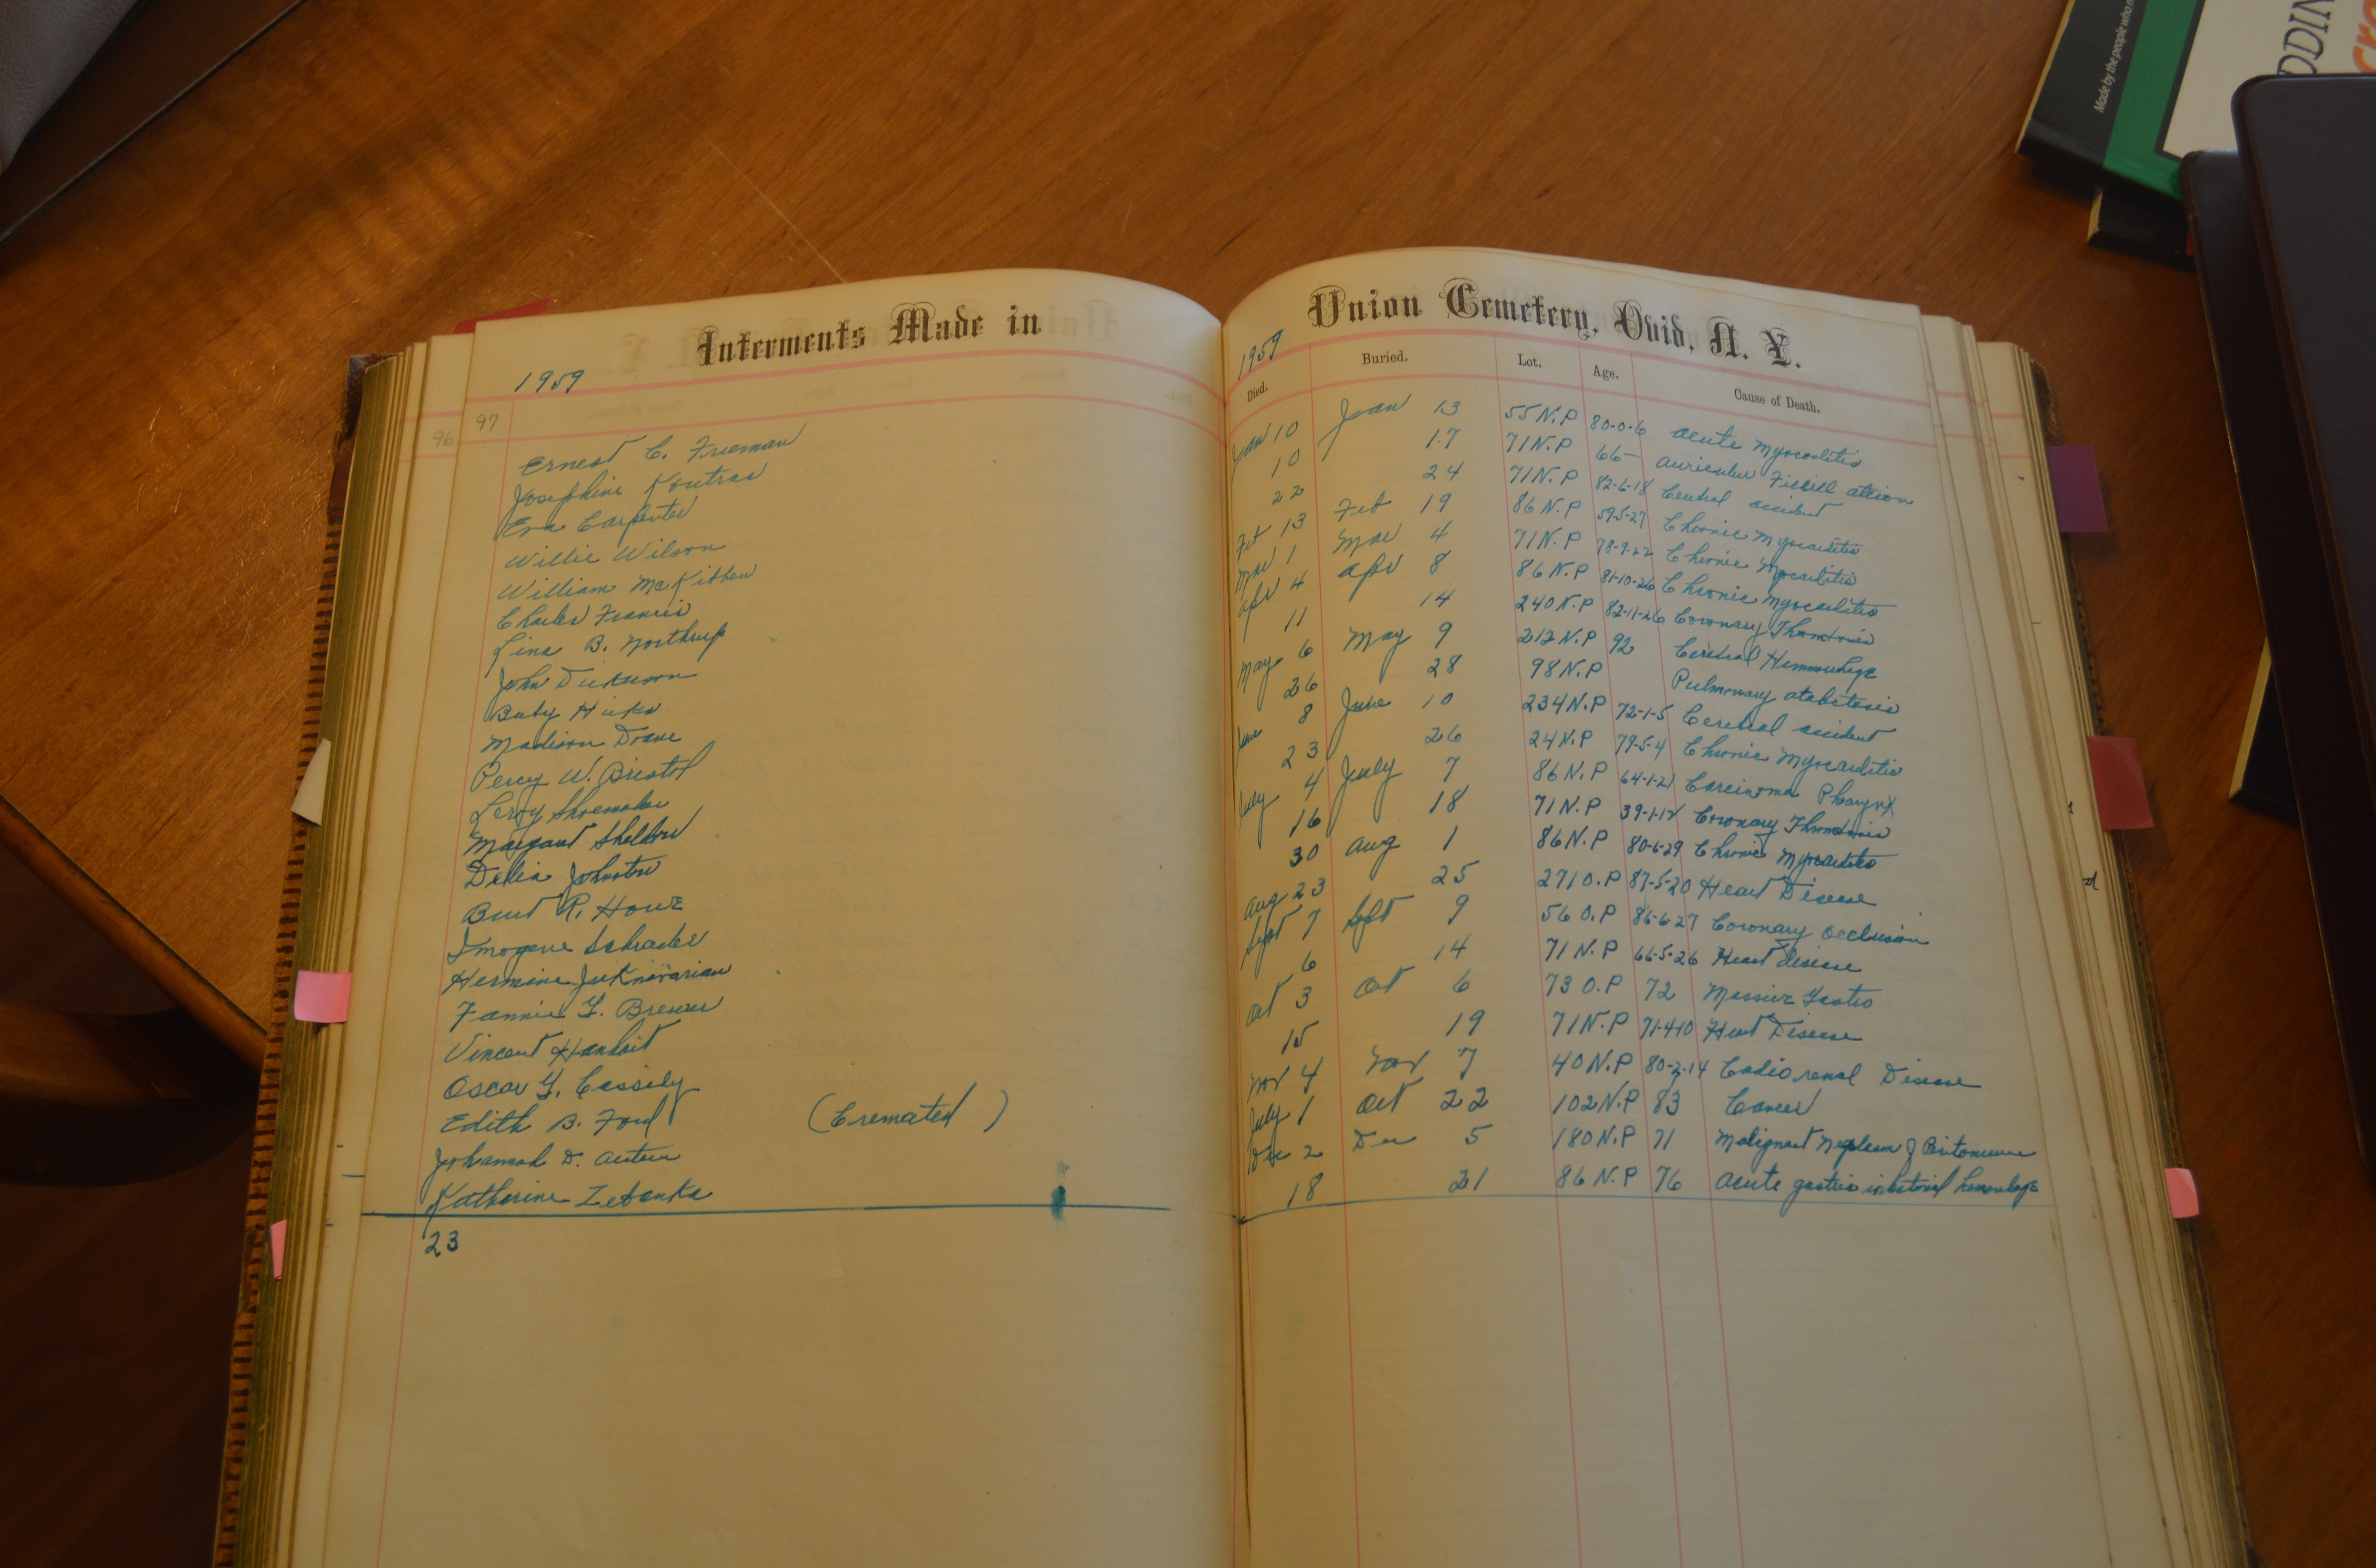 Interments Made in
1959
96
97
Ernest C. Freeman
Josephine Koutras
Eva Carpenter
Willie Wilson
William McKibben
Charles Francis
Lina B. Northrup
John Dickerson
Baby Hicks
Madison Doane
Percy W. Bristol
Leroy Shoemaker
Margaret Sheldon
Delia Johnston
Burt R. Howe
Imogene Schrader
Hermine
Fannie Y. Brewer
Vincent
Oscar Y. Cassidy
Edith B. Ford (Cremated)
Johannah D. Auten
Katherine Zebanka
23
Union Cemetery, Ovid, N. Y.
1959
Died. Buried. Lot. Age. Cause of Death.
Jan 10 Jan 13 55 N.P 80-0-6 Acute Myocarditis
10 17 71 N.P 66- Auricular
22 24 71 N.P 82-6-18 accident
Feb 13 Feb 19 86 N.P 59-5-27 Chronic Myocarditis
Mar 1 Mar 4 71 N.P 78-9-22 Chronic Myocarditis
Apr 4 Apr 8 86 N.P 81-10-26 Chronic Myocarditis
11 14 240 N.P 82-11-26 Coronary Thrombosis
May 6 May 9 212 N.P 92 Cerebral Hemmorhage
26 28 98 N.P Pulmonary
June 8 June 10 234 N.P 72-1-5 Cerebral accident
23 26 24 N.P 79-5-4 Chronic Myocarditis
July 4 July 7 86 N.P 64-1-21 Carcinoma Pharynx
16 18 71 N.P 39-1-12 Coronary Thrombosis
30 Aug 1 86 N.P 80-6-29 Chronic Myocarditis
Aug 23 25 271 O.P 87-5-20 Heart Disease
Sept 7 Sept 9 56 O.P 86-6-27 Coronary Occlusion
6 14 71 N.P 66-5-26 Heart disease
Oct 3 Oct 6 73 O.P 72 Massive Gastro
15 19 71 N.P 71-4-10 Heart Disease
Nov 4 Nov 7 40 N.P 80-2-14 Cadio renal Disease
July 1 Oct 22 102 N.P 83 Cancer
Dec 2 Dec 5 180 N.P 71 Malignant
18 21 86 N.P 76 Acute gastro intestinal
Made by the people who